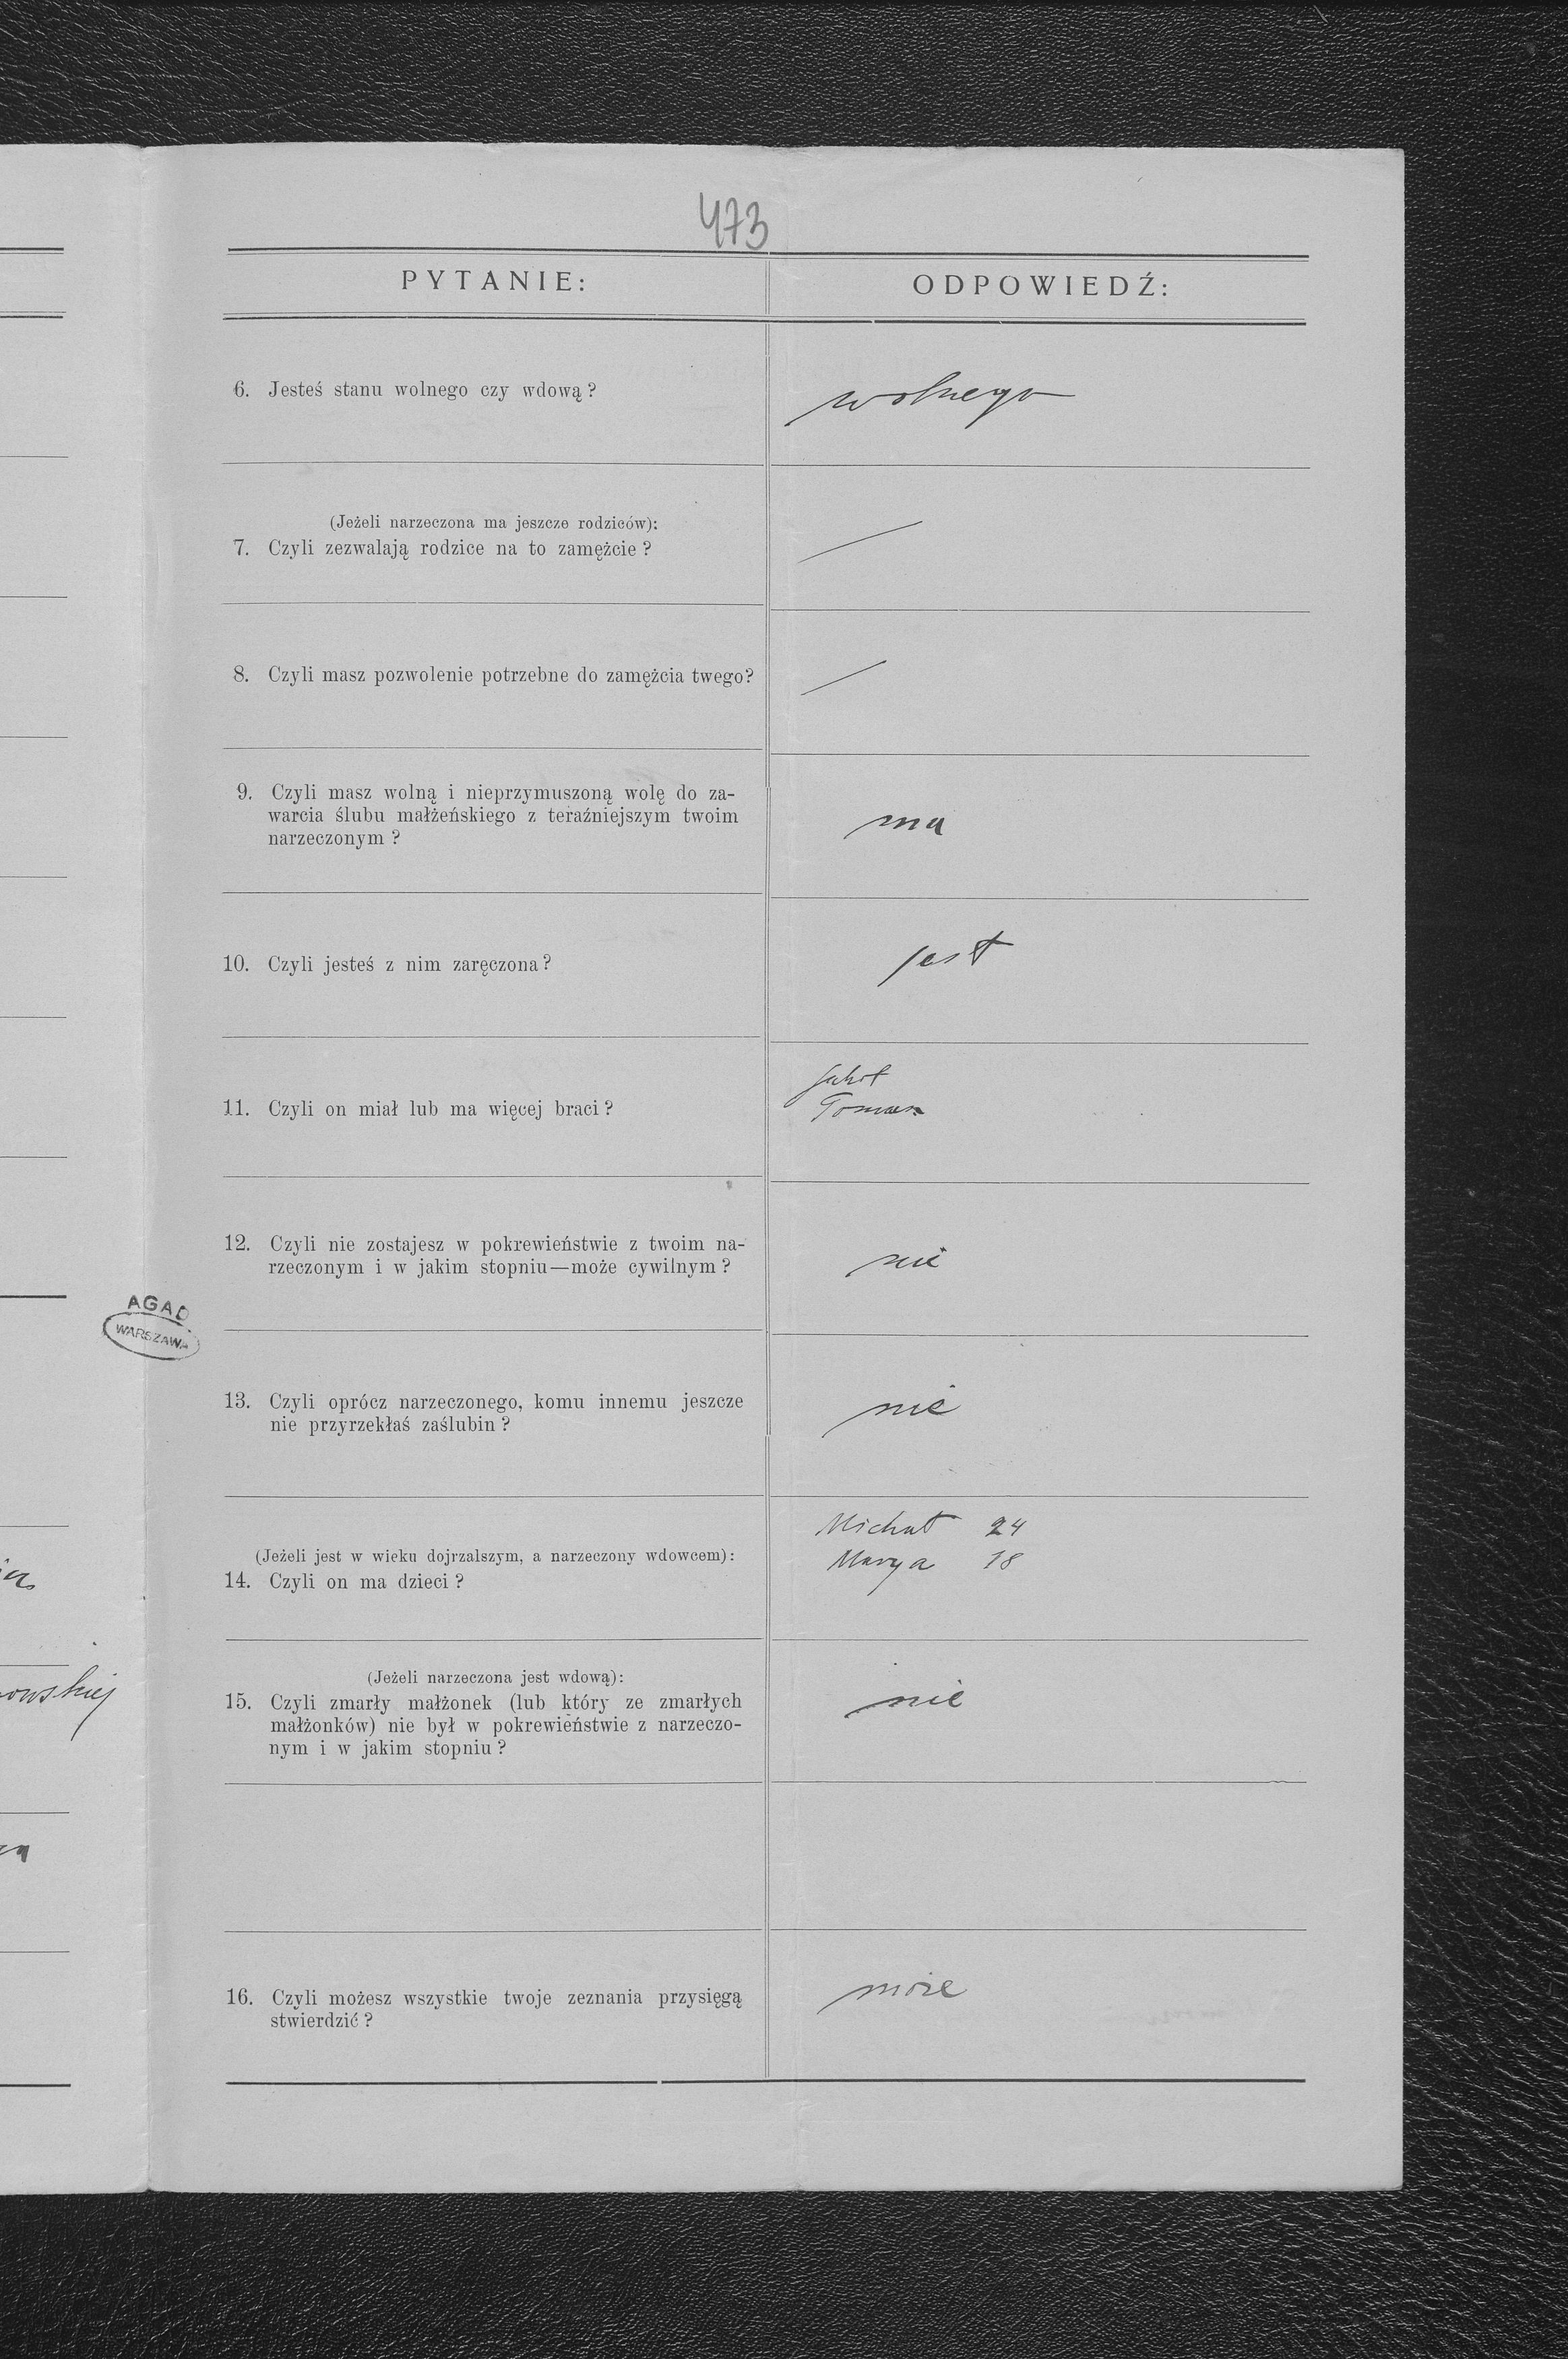 473
PYTANIE:
ODPOWIEDŹ:
6. Jesteś stanu wolnego czy wdową?
wolnego
(Jeżeli narzeczona ma jeszcze rodziców):
7. Czyli zezwalają rodzice na to zamężcie?
8. Czyli masz pozwolenie potrzebne do zamężcia twego?
9. Czyli masz wolną i nieprzymuszoną wolę do za-
warcia ślubu małżeńskiego z teraźniejszym twoim
narzeczonym?
ma
10. Czyli jesteś z nim zaręczona?
jest
11. Czyli on miał lub ma więcej braci?
Tomasz
12. Czyli nie zostajesz w pokrewieństwie z twoim na-
rzeczonym i w jakim stopniu—może cywilnym?
nie
13. Czyli oprócz narzeczonego, komu innemu jeszcze
nie przyrzekłaś zaślubin?
nie
(Jeżeli jest w wieku dojrzalszym, a narzeczony wdowcem):
14. Czyli on ma dzieci?
Michał 24
Marya 18
(Jeżeli narzeczona jest wdową):
15. Czyli zmarły małżonek (lub który ze zmarłych
małżonków) nie był w pokrewieństwie z narzeczo-
nym i w jakim stopniu?
nie
16. Czyli możesz wszystkie twoje zeznania przysięgą
stwierdzić?
może
AGAD
WARSZAWA